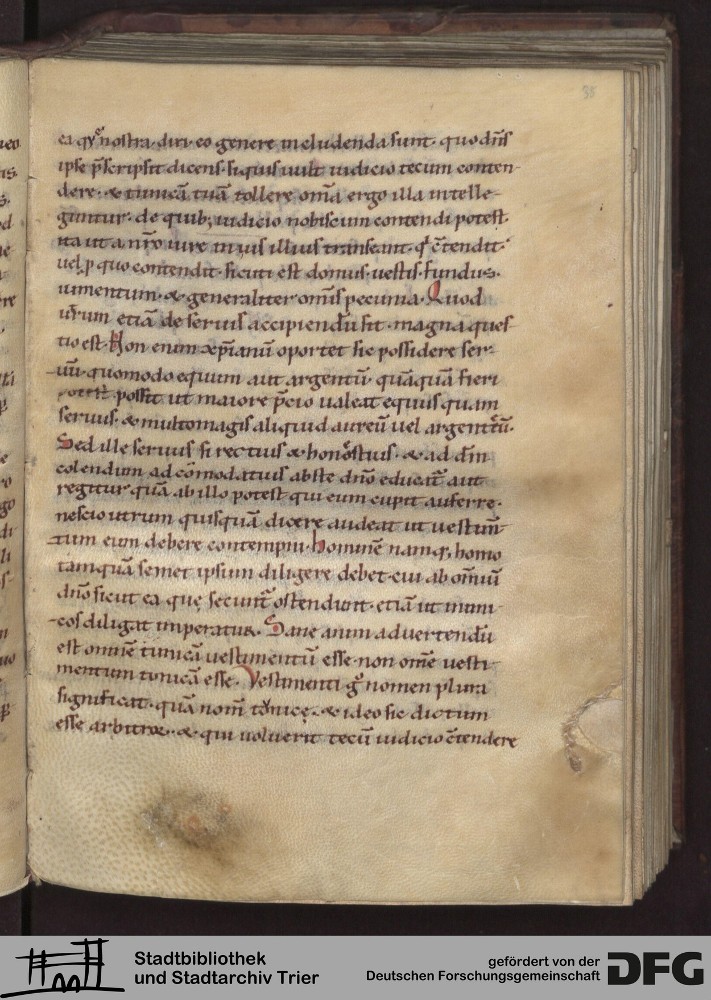 35
ea quę nostra diri eo genere includenda sunt. quo dn̄s
ipse p̄scripsit dicens. si quis uult iudicio tecum conten-
dere. & tunicā tuā tollere. om̄a ergo illa intelle-
guntur. de quib; iudicio nobiscum contendi potest.
ita ut a nr̄o iure in ius illius transeant. q̄ c̄tendit.
uel p quo contendit. sicuti est domus. uestis. fundus.
iumentum. & generaliter om̄is pecunia. Quod
utrum etiā de seruis accipiendū sit. magna ques-
tio est. Non enim xp̄ianū oportet sic possidere ser-
uū. quomodo equum aut argentū. quāquā fieri
possit ut maiore p̄cio ualeat equus quam
seruus. & multo magis aliquid aureū uel argentēū.
Sed ille seruus si rectius & honestius. & ad dm̄
colendum ad cōmodatius abs te dn̄o educat̄ aut
regitur quā ab illo potest qui eum cupit auferre.
nescio utrum quisquā dicere audeat ut uestim̄-
tum eum debere contempni. homine namq; homo
tamquā semet ipsum diligere debet. cui ab om̄iū
dn̄o sicut ea que secunt̄ ostendunt. etiā ut inimi-
cos diligat imperatur. Sane animaduertendū
est omnē tunicā uestimentū esse. non omē uesti-
mentum tunicā esse. Vestimenti g̊ nomen plura
significat. quā nom̄ tonice. & ideo sic dictum
esse arbitror. & qui uoluerit tecū iudicio c̄tendere
Stadtbibliothek
und Stadtarchiv Trier
gefördert von der
Deutschen Forschungsgemeinschaft
DFG